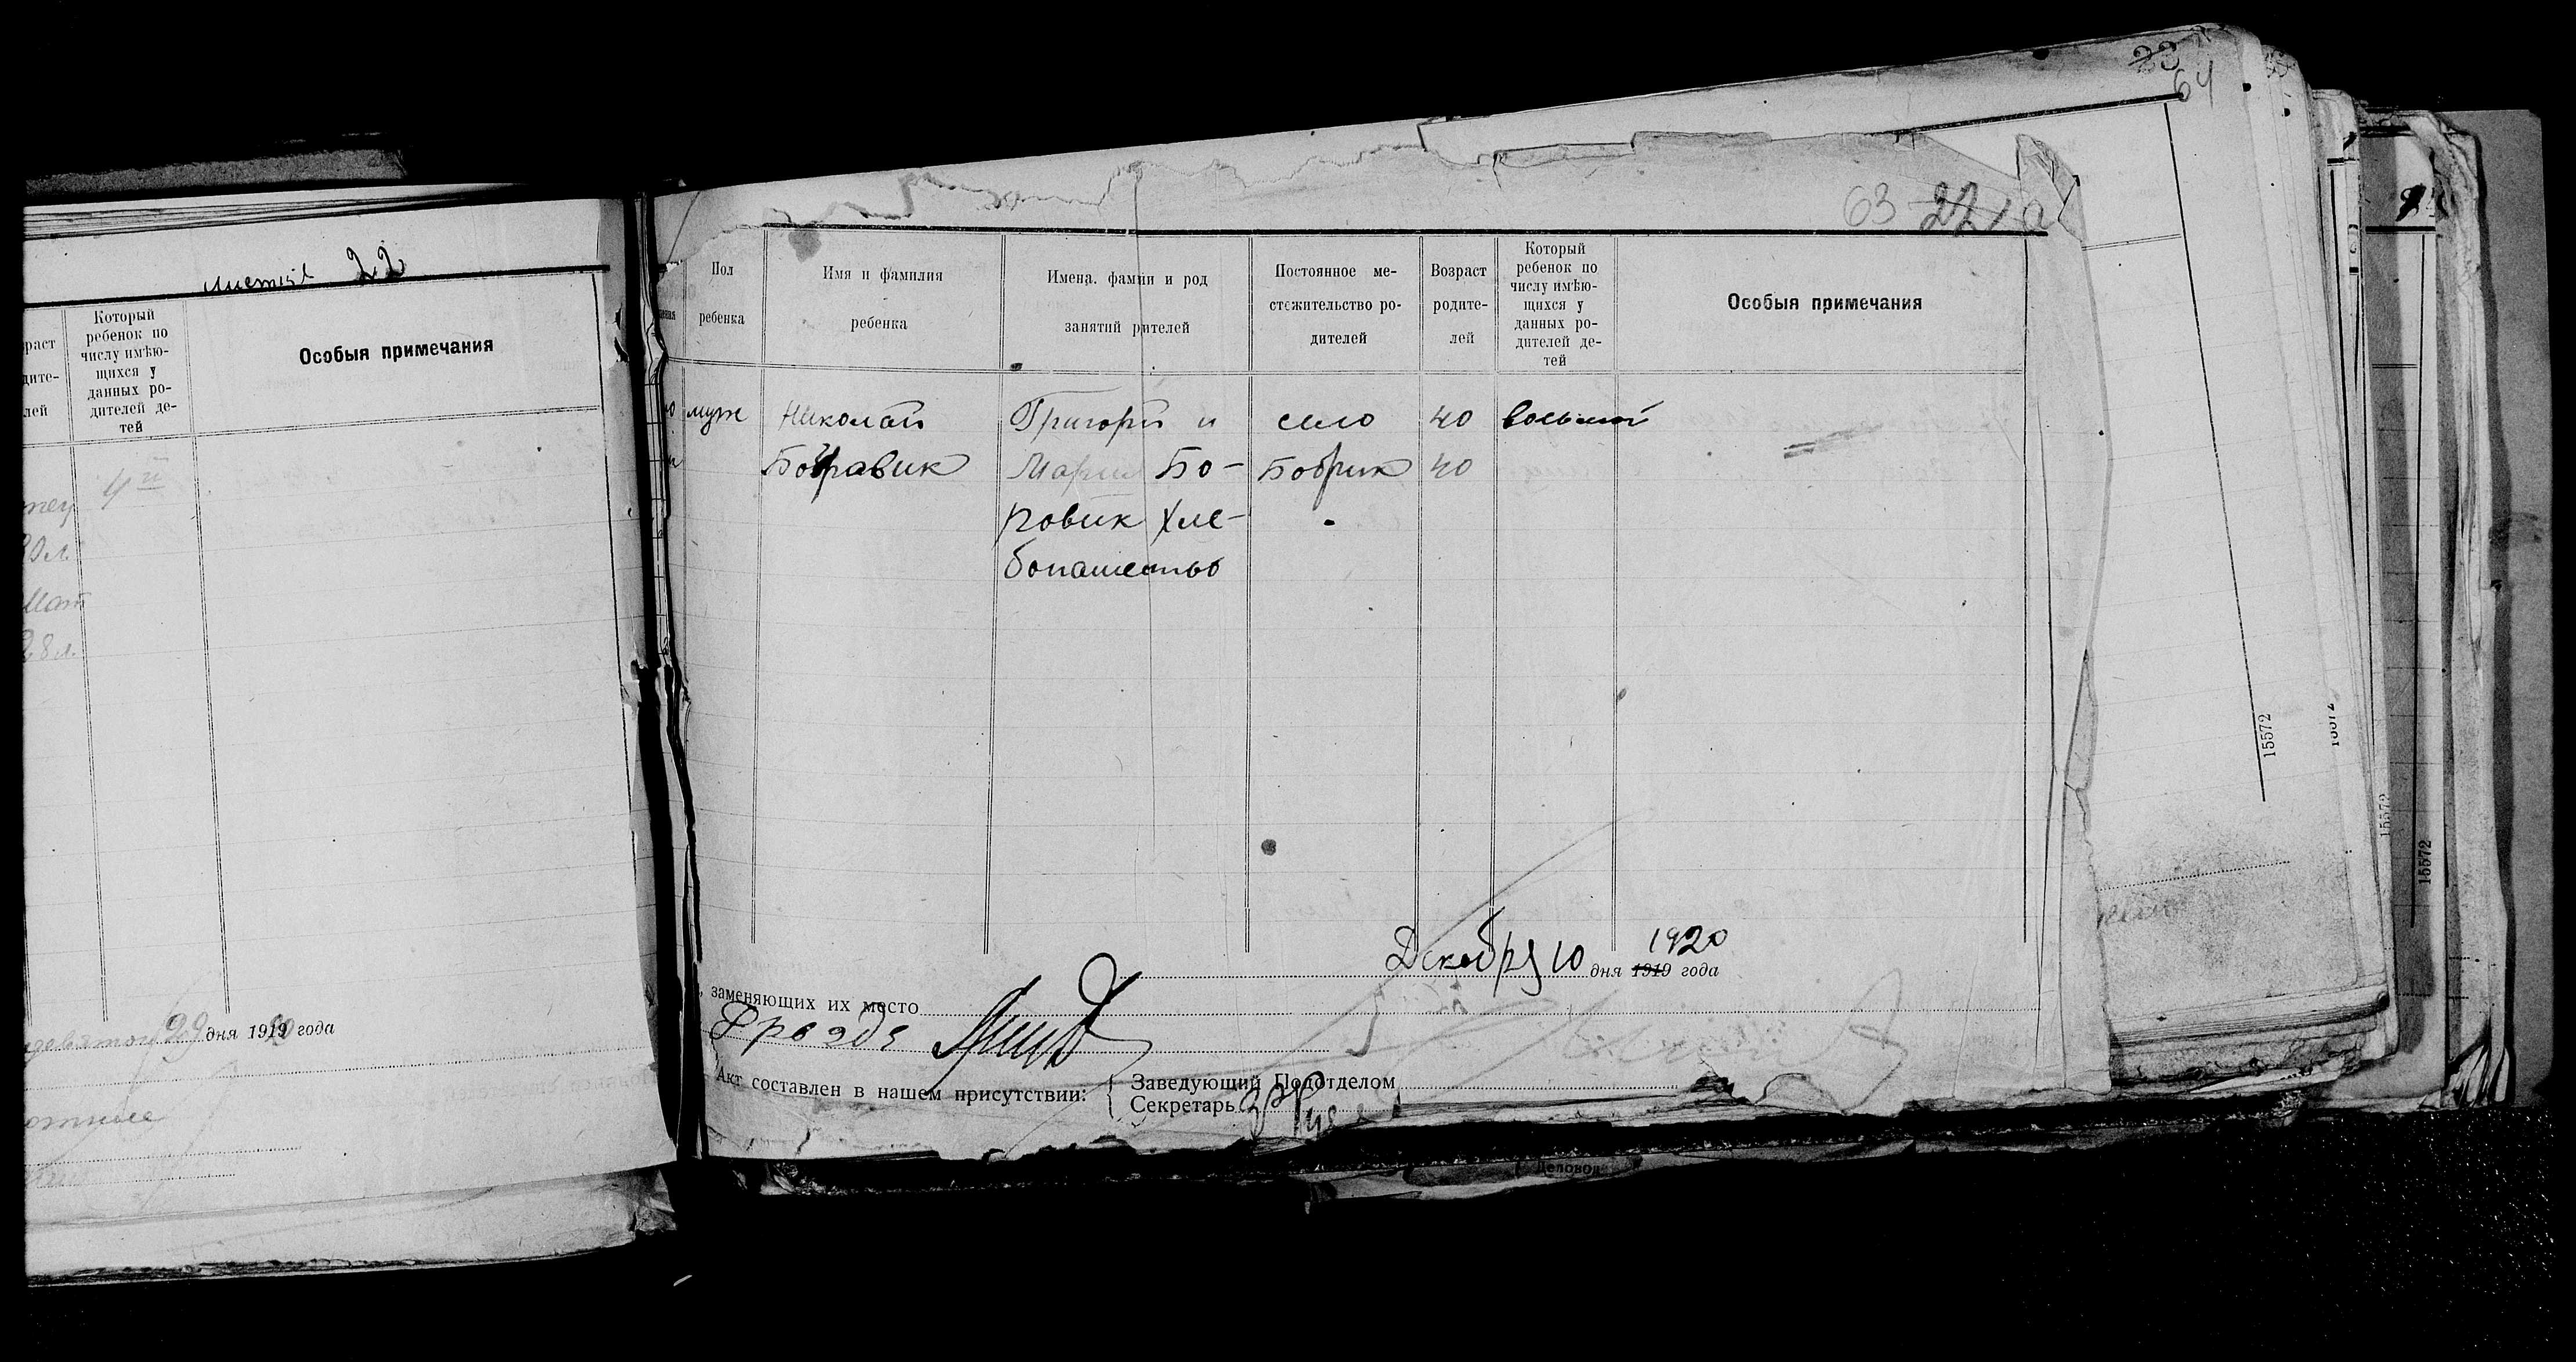 22
раст
дите-
лей
Который
ребенок по
числу имѣю-
щихся у
данных ро-
дителей де-
тей
Особыя примечания
4й
30 л.
28 л.
29 дня 1919 20 года
23
64
63 22 а
Пол
ребенка
Имя и фамилия
ребенка
Имена, фамии и род
занятий рителей
Постоянное ме-
стожительство ро-
дителей
Возраст
родите-
лей
Который
ребенок по
числу имѣю-
щихся у
данных ро-
дителей де-
тей
Особыя примечания
муж Николай Григорй и село 40 восьмой
Мария Бо- Бобрик 40
ровик Хле-
бопашество
Декабря 10 дня 1919 1920 года
, заменяющих их место
Акт составлен в нашем присутствии:
Заведующий Подотделом
Секретарь
Деловод
15572
15572
15572
15572